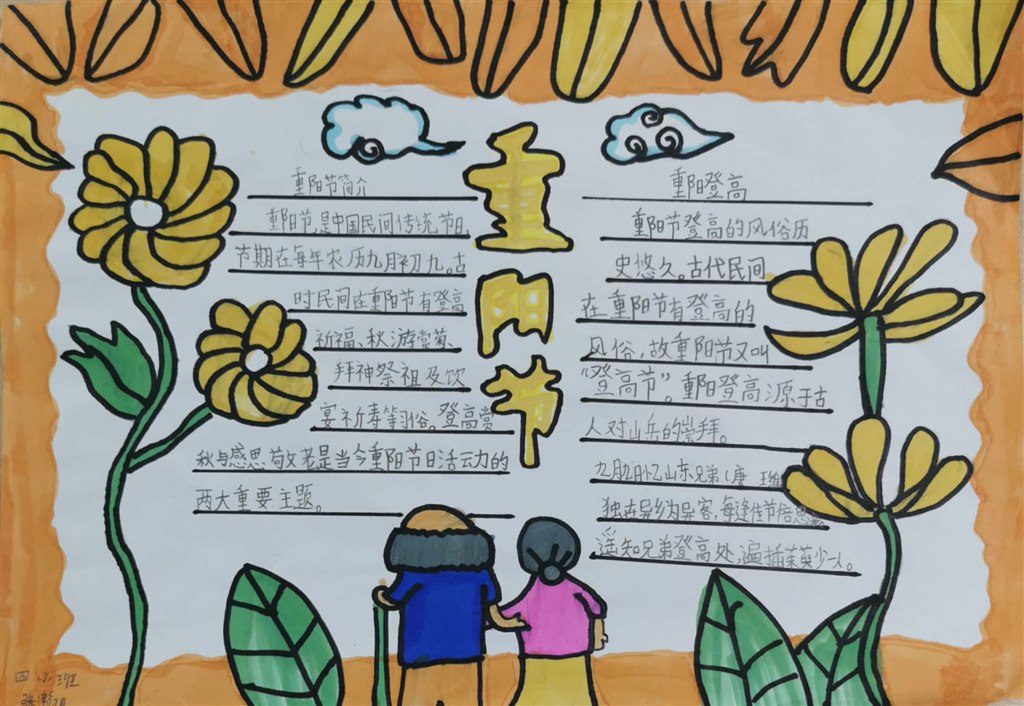 重阳节
重阳节简介
重阳节,是中国民间传统节日,
节期在每年农历九月初九。古
时民间在重阳节有登高
祈福、秋游赏菊、
拜神祭祖及饮
宴祈寿等习俗。登高赏
秋与感恩敬老是当今重阳节日活动力的
两大重要主题。
重阳登高
重阳节登高的风俗历
史悠久。古代民间
在重阳节有登高的
风俗,故重阳节又叫
“登高节”。重阳登高源于古
人对山岳的崇拜。
九月九日忆山东兄弟(唐 王维
独在异乡为异客,每逢佳节倍思
遥知兄弟登高处,遍插茱萸少一人。
四